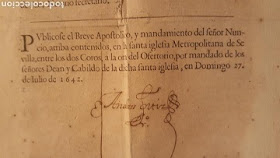 todocoleccion
no secretario,
PVblicose el Breve Apostolico, y mandamiento del señor Nun-
cio, arriba contenidos, en la santa iglesia Metropolitana de Se
villa, entre los dos Coros, a la ora del Ofertorio, por mandado de los
señores Dean y Cabildo de la dicha santa iglesia, en Domingo 27.
de Iulio de 1642.